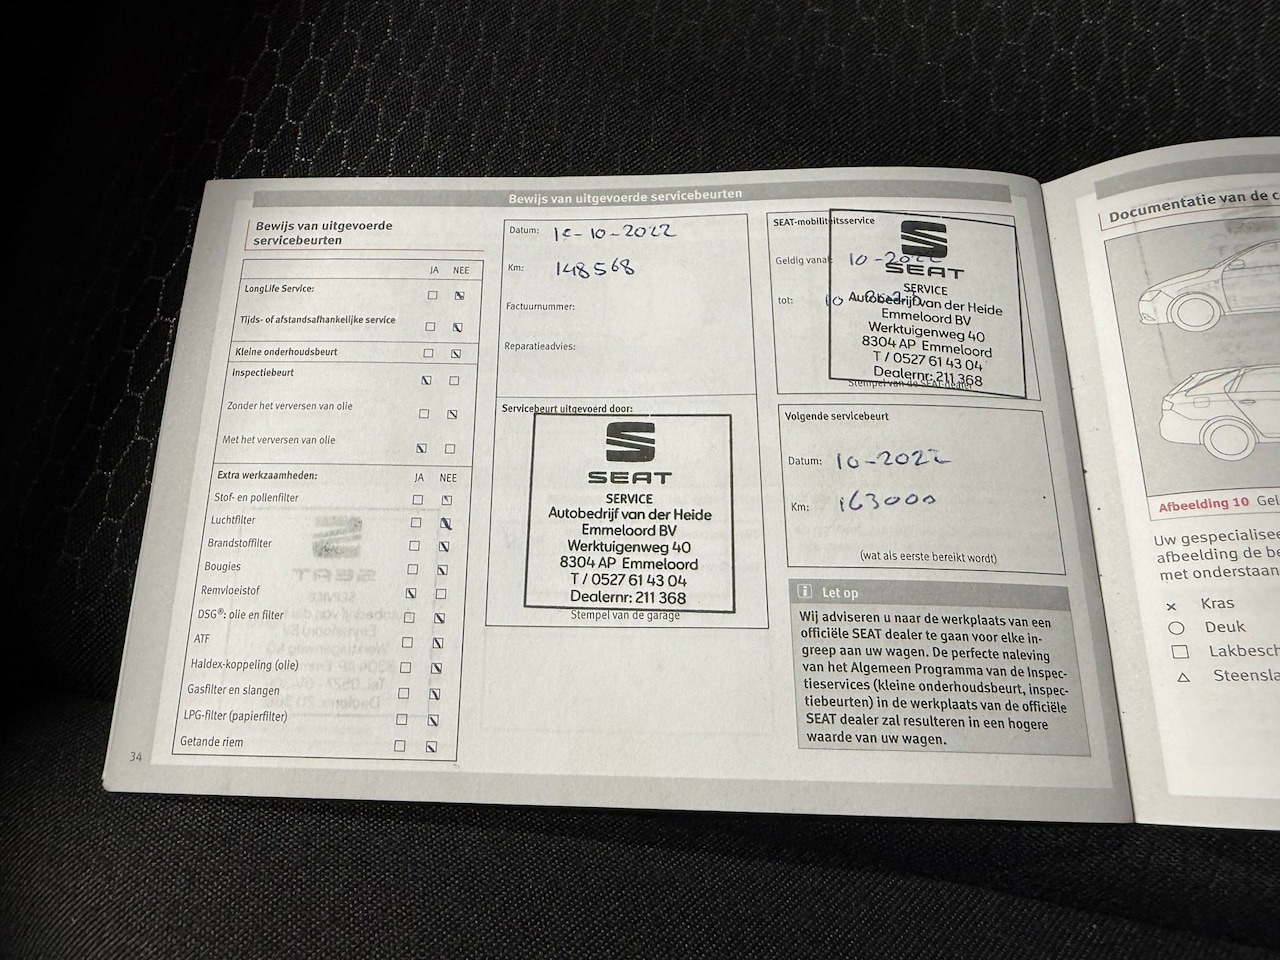 Bewijs van uitgevoerde servicebeurten
Bewijs van uitgevoerde
servicebeurten
JA NEE
LongLife Service:
Tijds- of afstandsafhankelijke service
Kleine onderhoudsbeurt
Inspectiebeurt
Zonder het verversen van olie
Met het verversen van olie
Extra werkzaamheden: JA NEE
Stof- en pollenfilter
Luchtfilter
Brandstoffilter
Bougies
Remvloeistof
DSG®: olie en filter
ATF
Haldex-koppeling (olie)
Gasfilter en slangen
LPG-filter (papierfilter)
Getande riem
34
Datum: -10-2022
Km: 148568
Factuurnummer:
Reparatieadvies:
Servicebeurt uitgevoerd door:
SEAT
SERVICE
Autobedrijf van der Heide
Emmeloord BV
Werktuigenweg 40
8304 AP Emmeloord
T / 0527 61 43 04
Dealernr: 211 368
Stempel van de garage
SEAT-mobiliteitsservice
Geldig vanaf 10-2022
tot: 10
SEAT
SERVICE
Autobedrijf van der Heide
Emmeloord BV
Werktuigenweg 40
8304 AP Emmeloord
T / 0527 61 43 04
Dealernr: 211 368
Stempel van de SEAT-dealer
Volgende servicebeurt
Datum: 10-2022
Km: 163000
(wat als eerste bereikt wordt)
i Let op
Wij adviseren u naar de werkplaats van een
officiële SEAT dealer te gaan voor elke in-
greep aan uw wagen. De perfecte naleving
van het Algemeen Programma van de Inspec-
tieservices (kleine onderhoudsbeurt, inspec-
tiebeurten) in de werkplaats van de officiële
SEAT dealer zal resulteren in een hogere
waarde van uw wagen.
Documentatie van de c
Afbeelding 10 Gel
Uw gespecialisee
afbeelding de be
met onderstaan
× Kras
Deuk
Lakbesch
Steensla